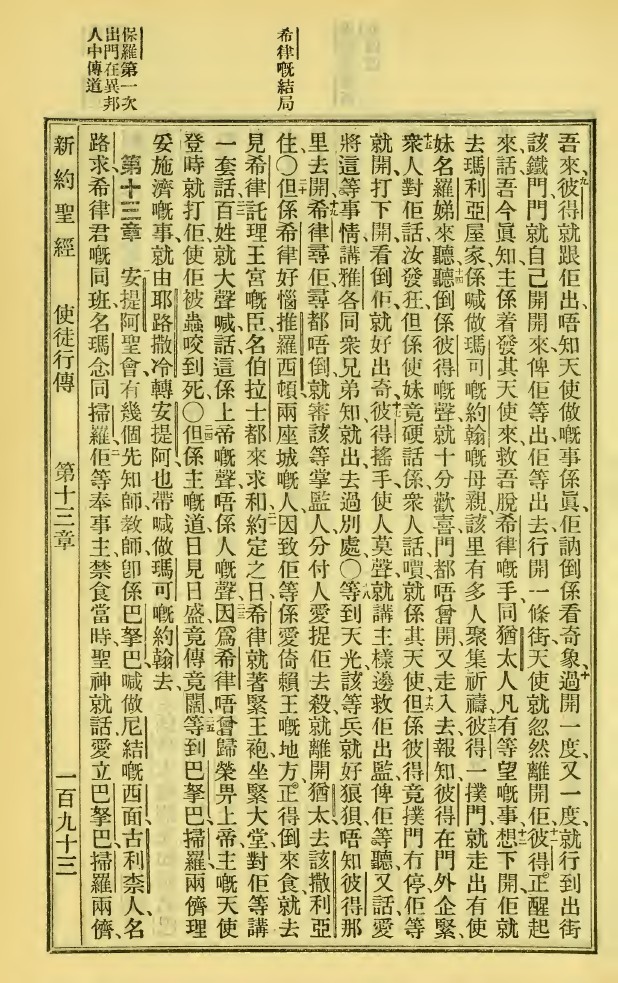 希律嘅結局
保羅第一次
出門在異邦
人中傳道
吾來、九彼得就跟佢出、唔知天使做嘅事係眞、佢訥倒係看奇象、十過開一度、又一度、就行到出街
該鐵門、門就自己開開來俾佢等出、佢等出去、行開一條街、天使就忽然離開佢、十一彼得正醒起
來、話吾今眞知主係着發其天使來救吾脫希律嘅手、同猶太人凡有等望嘅事、十二想下開佢就
去瑪利亞屋家、係喊做瑪可嘅約翰嘅母親、該里有多人聚集祈禱、十三彼得一撲門、就走出有使
妹名羅娣來聽、十四聽倒係彼得嘅聲、就十分歡喜、門都唔曾開、又走入去報知彼得在門外企緊、
十五衆人對佢話、汝發狂、但係使妹竟硬話係、衆人話嘖、就係其天使、十六但係彼得竟撲門冇停、佢等
就開、打下開看倒佢、就好出奇、十七彼得搖手使人莫聲、就講主樣邊救佢出監俾佢等聽、又話愛
將這等事情講雅各同衆兄弟知、就出去過別處、〇十八等到天光、該等兵就好狼狽、唔知彼得那
里去開、十九希律尋佢、尋都唔倒、就審該等掌監人、分付人愛捉佢去殺、就離開猶太、去該撒利亞
住、〇二十但係希律好惱推羅西頓兩座城嘅人、因致佢等係愛倚賴王嘅地方正得倒來食、就去
見希律、託理王宮嘅臣名伯拉士都、來求和、二一約定之日、希律就著緊王袍、坐緊大堂、對佢等講
一套話、二二百姓就大聲喊話、這係上帝嘅聲、唔係人嘅聲、二三因爲希律唔曾歸榮畀上帝、主嘅天使
登時就打佢、使佢被蟲咬到死、〇二四但係主嘅道、日見日盛、竟傳竟闊、二五等到巴拏巴掃羅兩儕理
妥施濟嘅事、就由耶路撒冷轉安提阿、也帶喊做瑪可嘅約翰去、
第十三章 一安提阿聖會有幾個先知師教師、卽係巴拏巴、喊做尼結嘅西面、古利柰人名
路求、希律君嘅同班名瑪念、同掃羅、二佢等奉事主禁食當時、聖神就話、愛立巴拏巴掃羅兩儕、
新約聖經 使徒行傳 第十三章 一百九十三